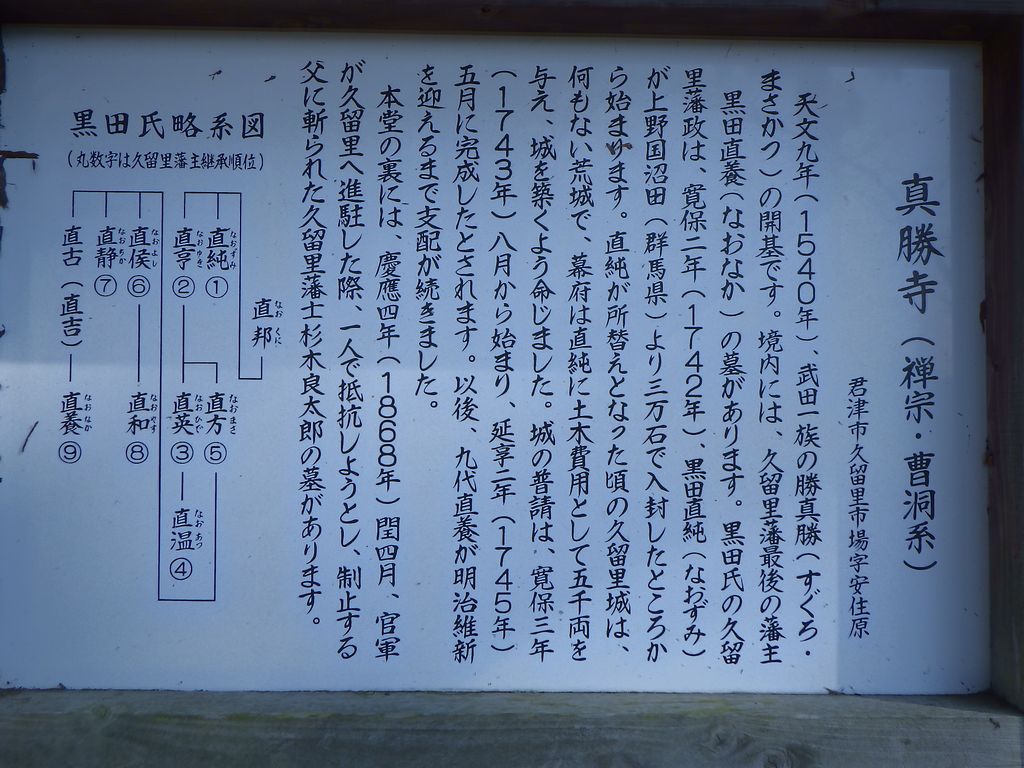 真勝寺（禅宗・曹洞系）
君津市久留里市場字安住原
天文九年（1540年）、武田一族の勝真勝（すぐろ・
まさかつ）の開基です。境内には、久留里藩最後の藩主
黒田直養（なおなか）の墓があります。黒田氏の久留
里藩政は、寛保二年（1742年）、黒田直純（なおずみ）
が上野国沼田（群馬県）より三万石で入封したところか
ら始まります。直純が所替えとなった頃の久留里城は、
何もない荒城で、幕府は直純に土木費用として五千両を
与え、城を築くよう命じました。城の普請は、寛保三年
（1743年）八月から始まり、延享二年（1745年）
五月に完成したとされます。以後、九代直養が明治維新
を迎えるまで支配が続きました。
本堂の裏には、慶應四年（1868年）閏四月、官軍
が久留里へ進駐した際、一人で抵抗しようとし、制止する
父に斬られた久留里藩士杉木良太郎の墓があります。
黒田氏略系図
（丸数字は久留里藩主継承順位）
直邦 なおくに
直純 なおずみ ①
直亨 なおゆき ②
直方 なおまさ ⑤
直英 なおひで ③
直温 なおあつ ④
直侯 なおよし ⑥
直和 なおやす ⑧
直静 なおちか ⑦
直古（直吉）
直養 なおなか ⑨